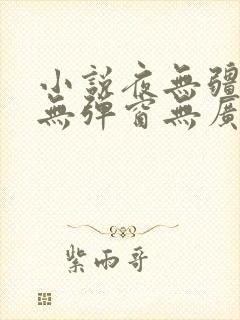 小説夜無疆
無彈窗無廣
紫雨哥